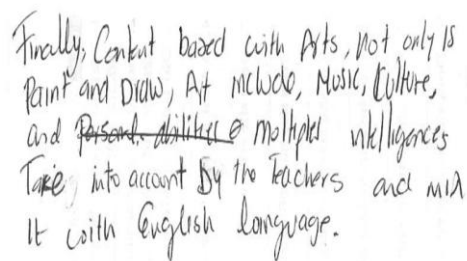 Finally, Content based with Arts, not only is
Paint and Draw, Art include, Music, Culture,
and Personal abilities multiples intelligences
Take into account by the Teachers and mix
It with English language.